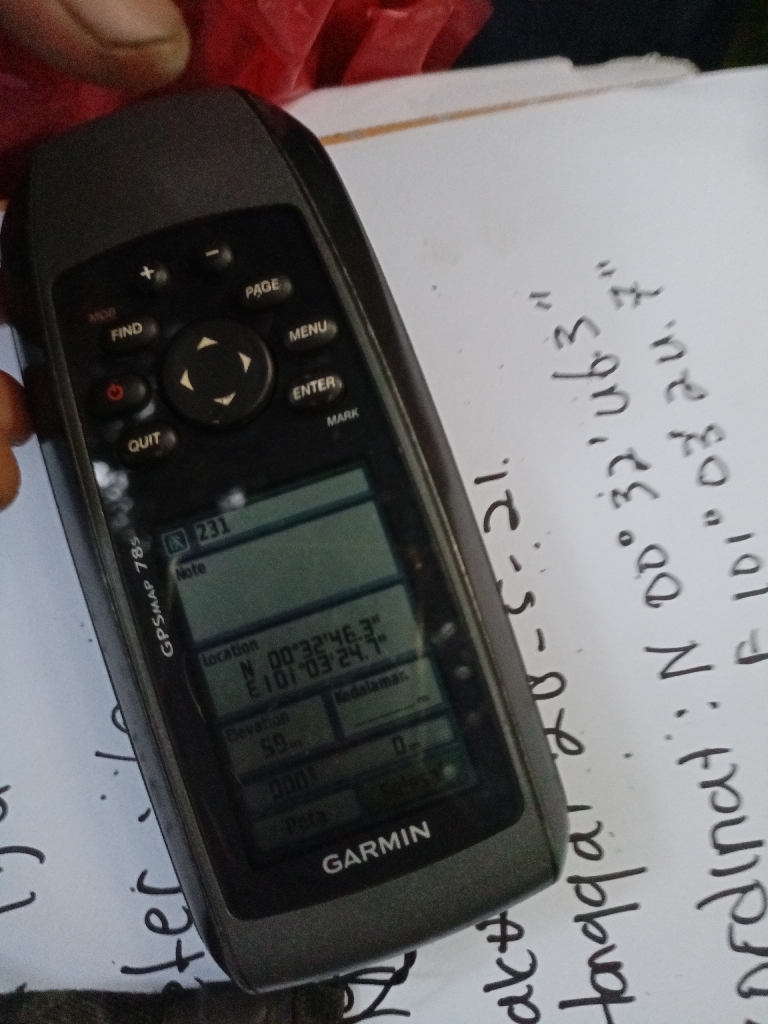 +
−
PAGE
MOB
FIND
MENU
ENTER
MARK
QUIT
GPSMAP 78s
231
Note
Location
N 00°32'46.3"
E101°03'24.7"
Elevation
59m
Kedalaman
_______m
0m
Peta
Selesai
GARMIN
tanggal 28-5-21.
ordinat : N 00° 32' 46.3"
E 101° 03' 24.7"